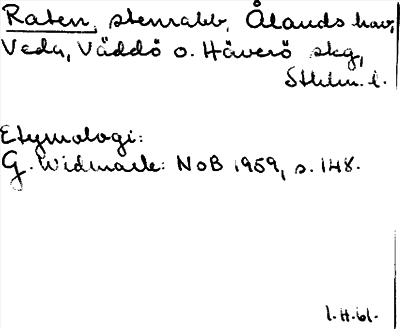 Raten, stenrabb, Ålands hav,
Veda, Väddö o. Häverö skg,
Sthlm. l.
Etymologi:
G. Widmark: NoB 1959, s. 148.
1.H.61.